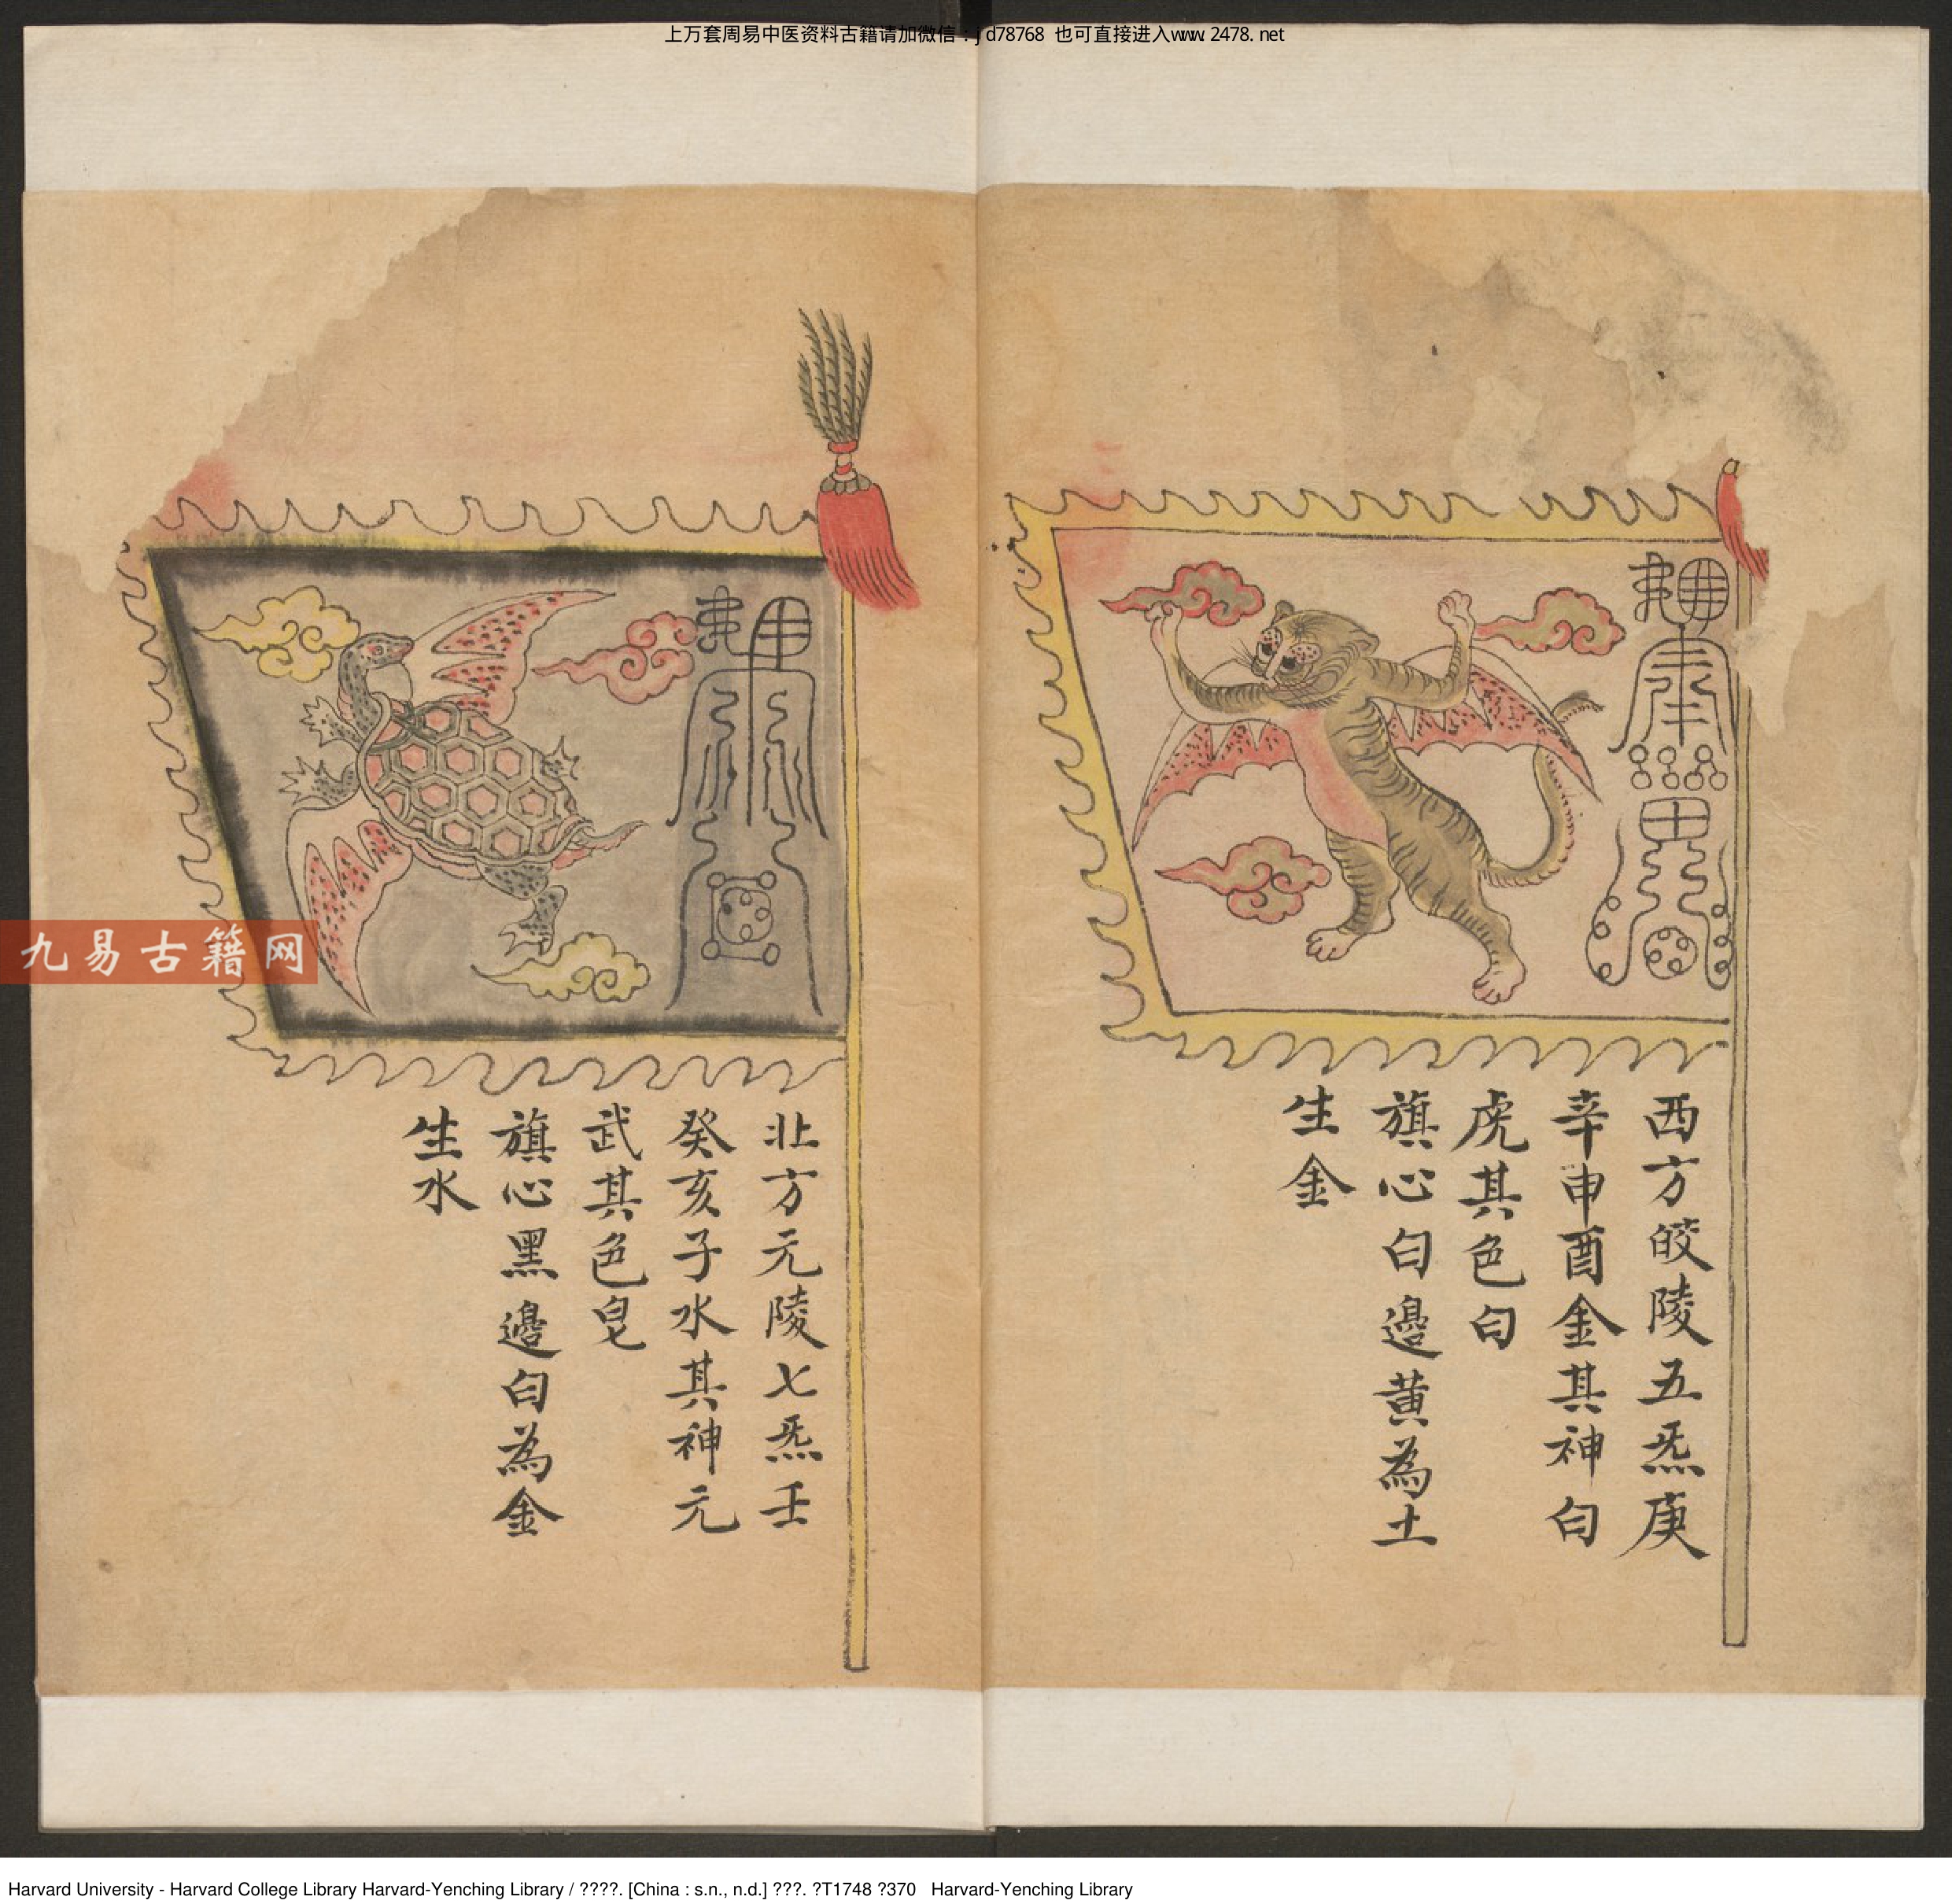 上万套周易中医资料古籍请加微信：jd78768 也可直接进入www.2478.net
西方皎陵五炁庚
辛申酉金其神白
虎其色白
旗心白邊黄為土
生金
北方元陵七炁壬
癸亥子水其神元
武其色皂
旗心黑邊白為金
生水
九易古籍网
Harvard University - Harvard College Library Harvard-Yenching Library / ????. [China : s.n., n.d.] ???. ?T1748 ?370 Harvard-Yenching Library